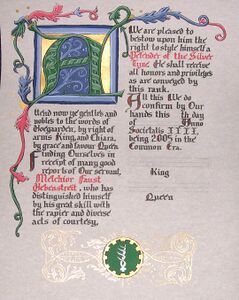 Attend now ye gentles and
nobles to the words of
Hoegaarden, by right of
arms King, and Chiara,
by grace and favour Queen
Finding Ourselves in
receipt of many good
reports of Our servant,
Melchior Faust
Hebenstreit, who has
distinguished himself
by his great skill with
the rapier and diverse
acts of courtesy,
We are pleased to
bestow upon him the
right to style himself a
Defender of the Silver
Tyne He shall receive
all honors and privileges
as are conveyed by
this rank.
All this We do
confirm by Our
hands this th day
of Anno
Societatis XXXX,
being 2005 in the
Common Era.
King
Queen